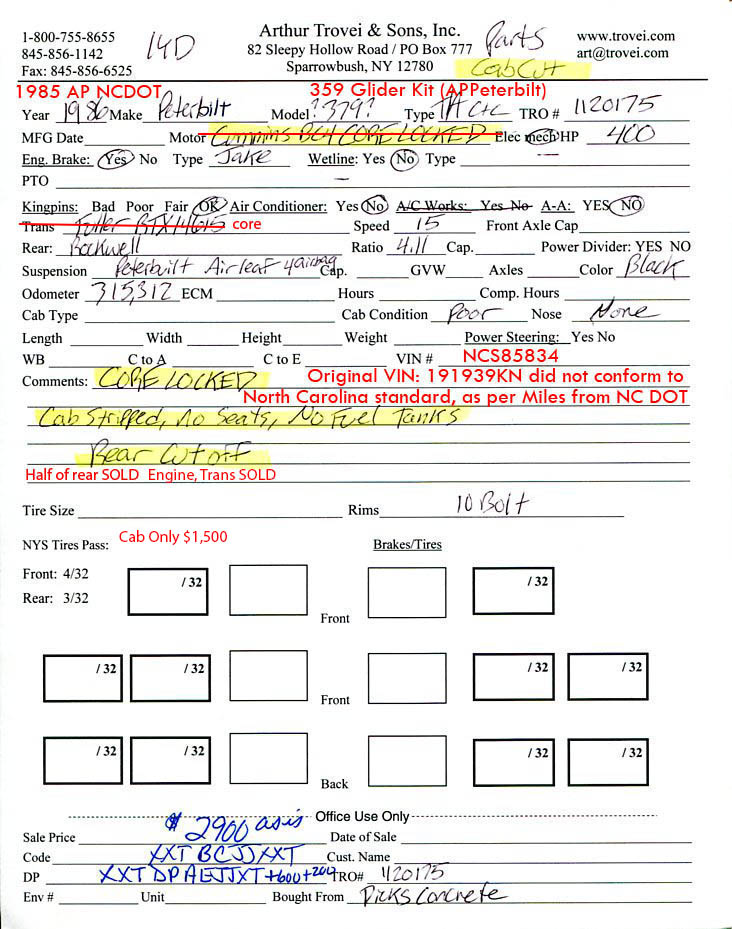 1-800-755-8655
845-856-1142
Fax: 845-856-6525
14D
Arthur Trovei & Sons, Inc.
82 Sleepy Hollow Road / PO Box 777
Sparrowbush, NY 12780
Parts
Cab Cut
www.trovei.com
art@trovei.com
1985 AP NCDOT 359 Glider Kit (APPeterbilt)
Year 1986 Make Peterbilt Model ?379? Type T/A TRO # 1120175
MFG Date Motor Cummins BC4 CORE LOCKED Elec mech HP 400
Eng. Brake: Yes No Type Jake Wetline: Yes No Type
PTO —
Kingpins: Bad Poor Fair OK Air Conditioner: Yes No A/C Works: Yes No A-A: YES NO
Trans Fuller RTX14615 core Speed 15 Front Axle Cap.
Rear: Rockwell Ratio 4.11 Cap. Power Divider: YES NO
Suspension Peterbuilt Air leaf 4 airbag Cap. GVW Axles Color Black
Odometer 315,312 ECM Hours Comp. Hours
Cab Type Cab Condition Poor Nose None
Length Width Height Weight Power Steering: Yes No
WB C to A C to E VIN # NCS85834
Comments: CORE LOCKED Original VIN: 191939KN did not conform to
North Carolina standard, as per Miles from NC DOT
Cab Stripped, No Seats, No Fuel Tanks
Rear Cut off
Half of rear SOLD Engine, Trans SOLD
Tire Size Rims 10 Bolt
NYS Tires Pass: Cab Only $1,500 Brakes/Tires
Front: 4/32
Rear: 3/32
/ 32 / 32
Front
/ 32 / 32 / 32 / 32
Front
/ 32 / 32 / 32 / 32
Back
Office Use Only
Sale Price $2900 as is Date of Sale
Code XXT BCJJXXT Cust. Name
DP XXT DPAEJJXT +600 +200 TRO# 1120175
Env # Unit Bought From Dicks Concrete